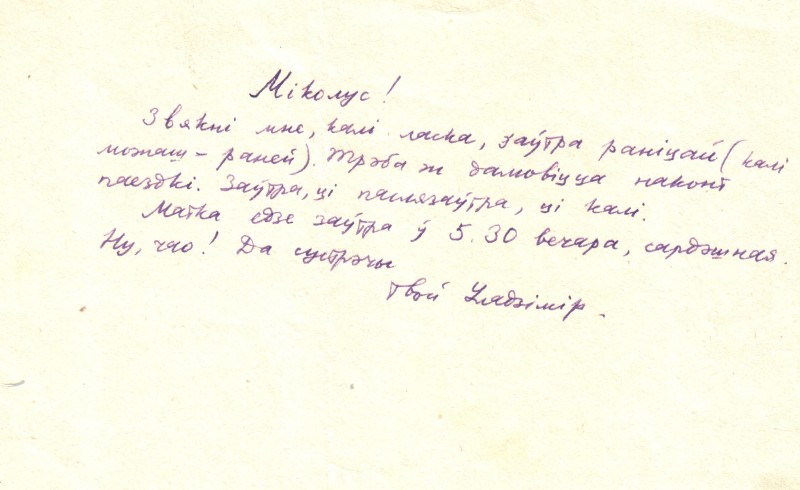 Міколус!
Звякні мне, калі ласка, заўтра раніцай (калі
можаш – раней). Трэба ж дамовіцца наконт
паездкі. Заўтра, ці паслязаўтра, ці калі.
Матка едзе заўтра ў 5.30 вечара, сардэшная.
Ну, чао! Да сустрэчы
Твой Уладзімір.